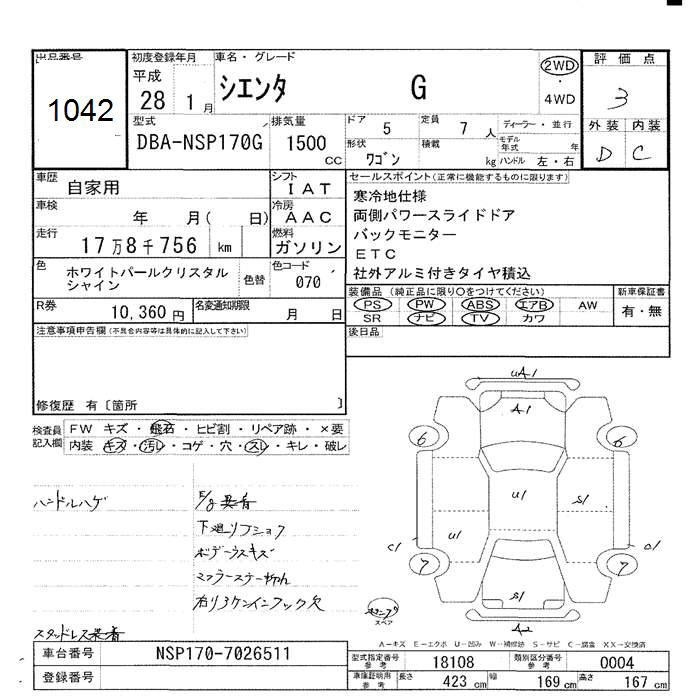 出品番号
1042
初度登録年月
平成
28 1月
車名・グレード
シエンタ G
2WD
4WD
評価点
3
外装 内装
D C
型式
DBA-NSP170G
排気量
1500
cc
ドア
5
定員
7 人
ディーラー・並行
モデル年式 年
形状
ワゴン
積載
kg
ハンドル 左・右
車歴
自家用
シフト
IAT
車検
年 月( 日)
冷房
AAC
走行
17万8千756 km
燃料
ガソリン
色
ホワイトパールクリスタル
シャイン
色替
色コード
070
R券
10,360円
名変通知期限
月 日
セールスポイント(正常に機能するものに限ります)
寒冷地仕様
両側パワースライドドア
バックモニター
ETC
社外アルミ付きタイヤ積込
装備品(純正品に限り○をつけてください)
PS PW ABS エアB AW
SR ナビ TV カワ
新車保証書
有・無
後日品
注意事項申告欄(不具合内容等は具体的に記入して下さい)
修復歴 有〔箇所 〕
検査員
記入欄
FW キズ・飛石・ヒビ割・リペア跡・×要
内装 キズ・汚レ・コゲ・穴・スレ・キレ・破レ
ハンドルハゲ
下廻リフショク
ボデーラスキズ
スタッドレス装着
uA1
A1
6
6
u1
s1
u1
c1
7
7
s1
A2
スペア
A-キズ E-エクボ U-凹み W-補修跡 S-サビ C-腐食 XX-交換済
車台番号
NSP170-7026511
登録番号
型式指定番号
参考
18108
類別区分番号
参考
0004
車庫証明用
参考
長さ
423 cm
幅
169 cm
高さ
167 cm